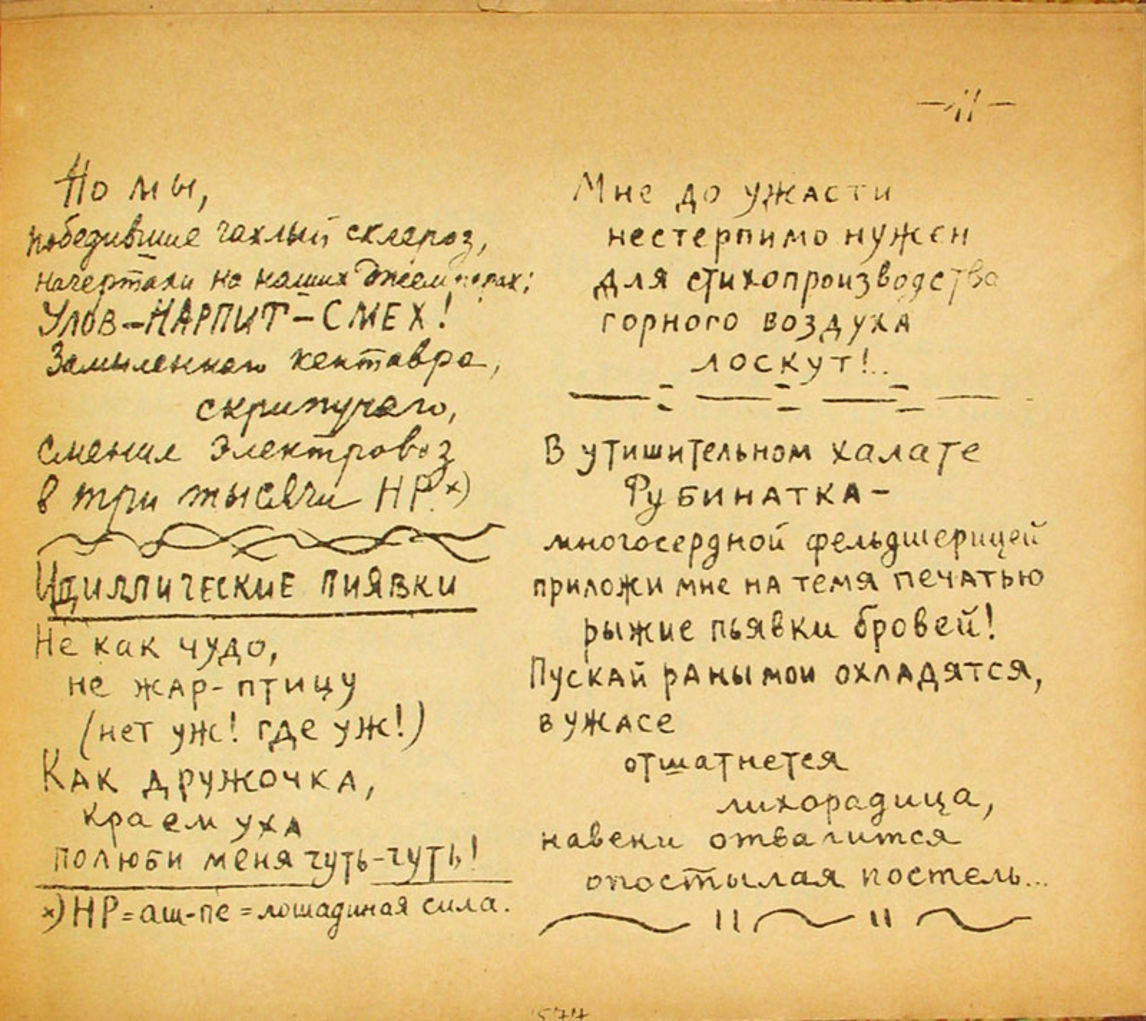 -11-
Но мы,
победившие чахлый склероз,
начертали на наших джемперах:
УЛОВ-НАРПИТ-СМЕХ!
Замыленного кентавра,
скрипучего,
сменил электровоз
в три тысячи НР.*)
ИДИЛЛИЧЕСКИЕ ПИЯВКИ
Не как чудо,
не жар-птицу
(нет уж! где уж!)
Как дружочка,
краем уха
полюби меня чуть-чуть!
*) НР=аш-пе=лошадиная сила.
Мне до ужасти
нестерпимо нужен
для стихопроизводства
горного воздуха
лоскут!..
В утишительном халате
Рубинатка-
многосердной фельдшерицей
приложи мне на темя печатью
рыжие пьявки бровей!
Пускай раны мои охладятся,
в ужасе
отшатнется
лихорадица,
навеки отвалится
опостылая постель...